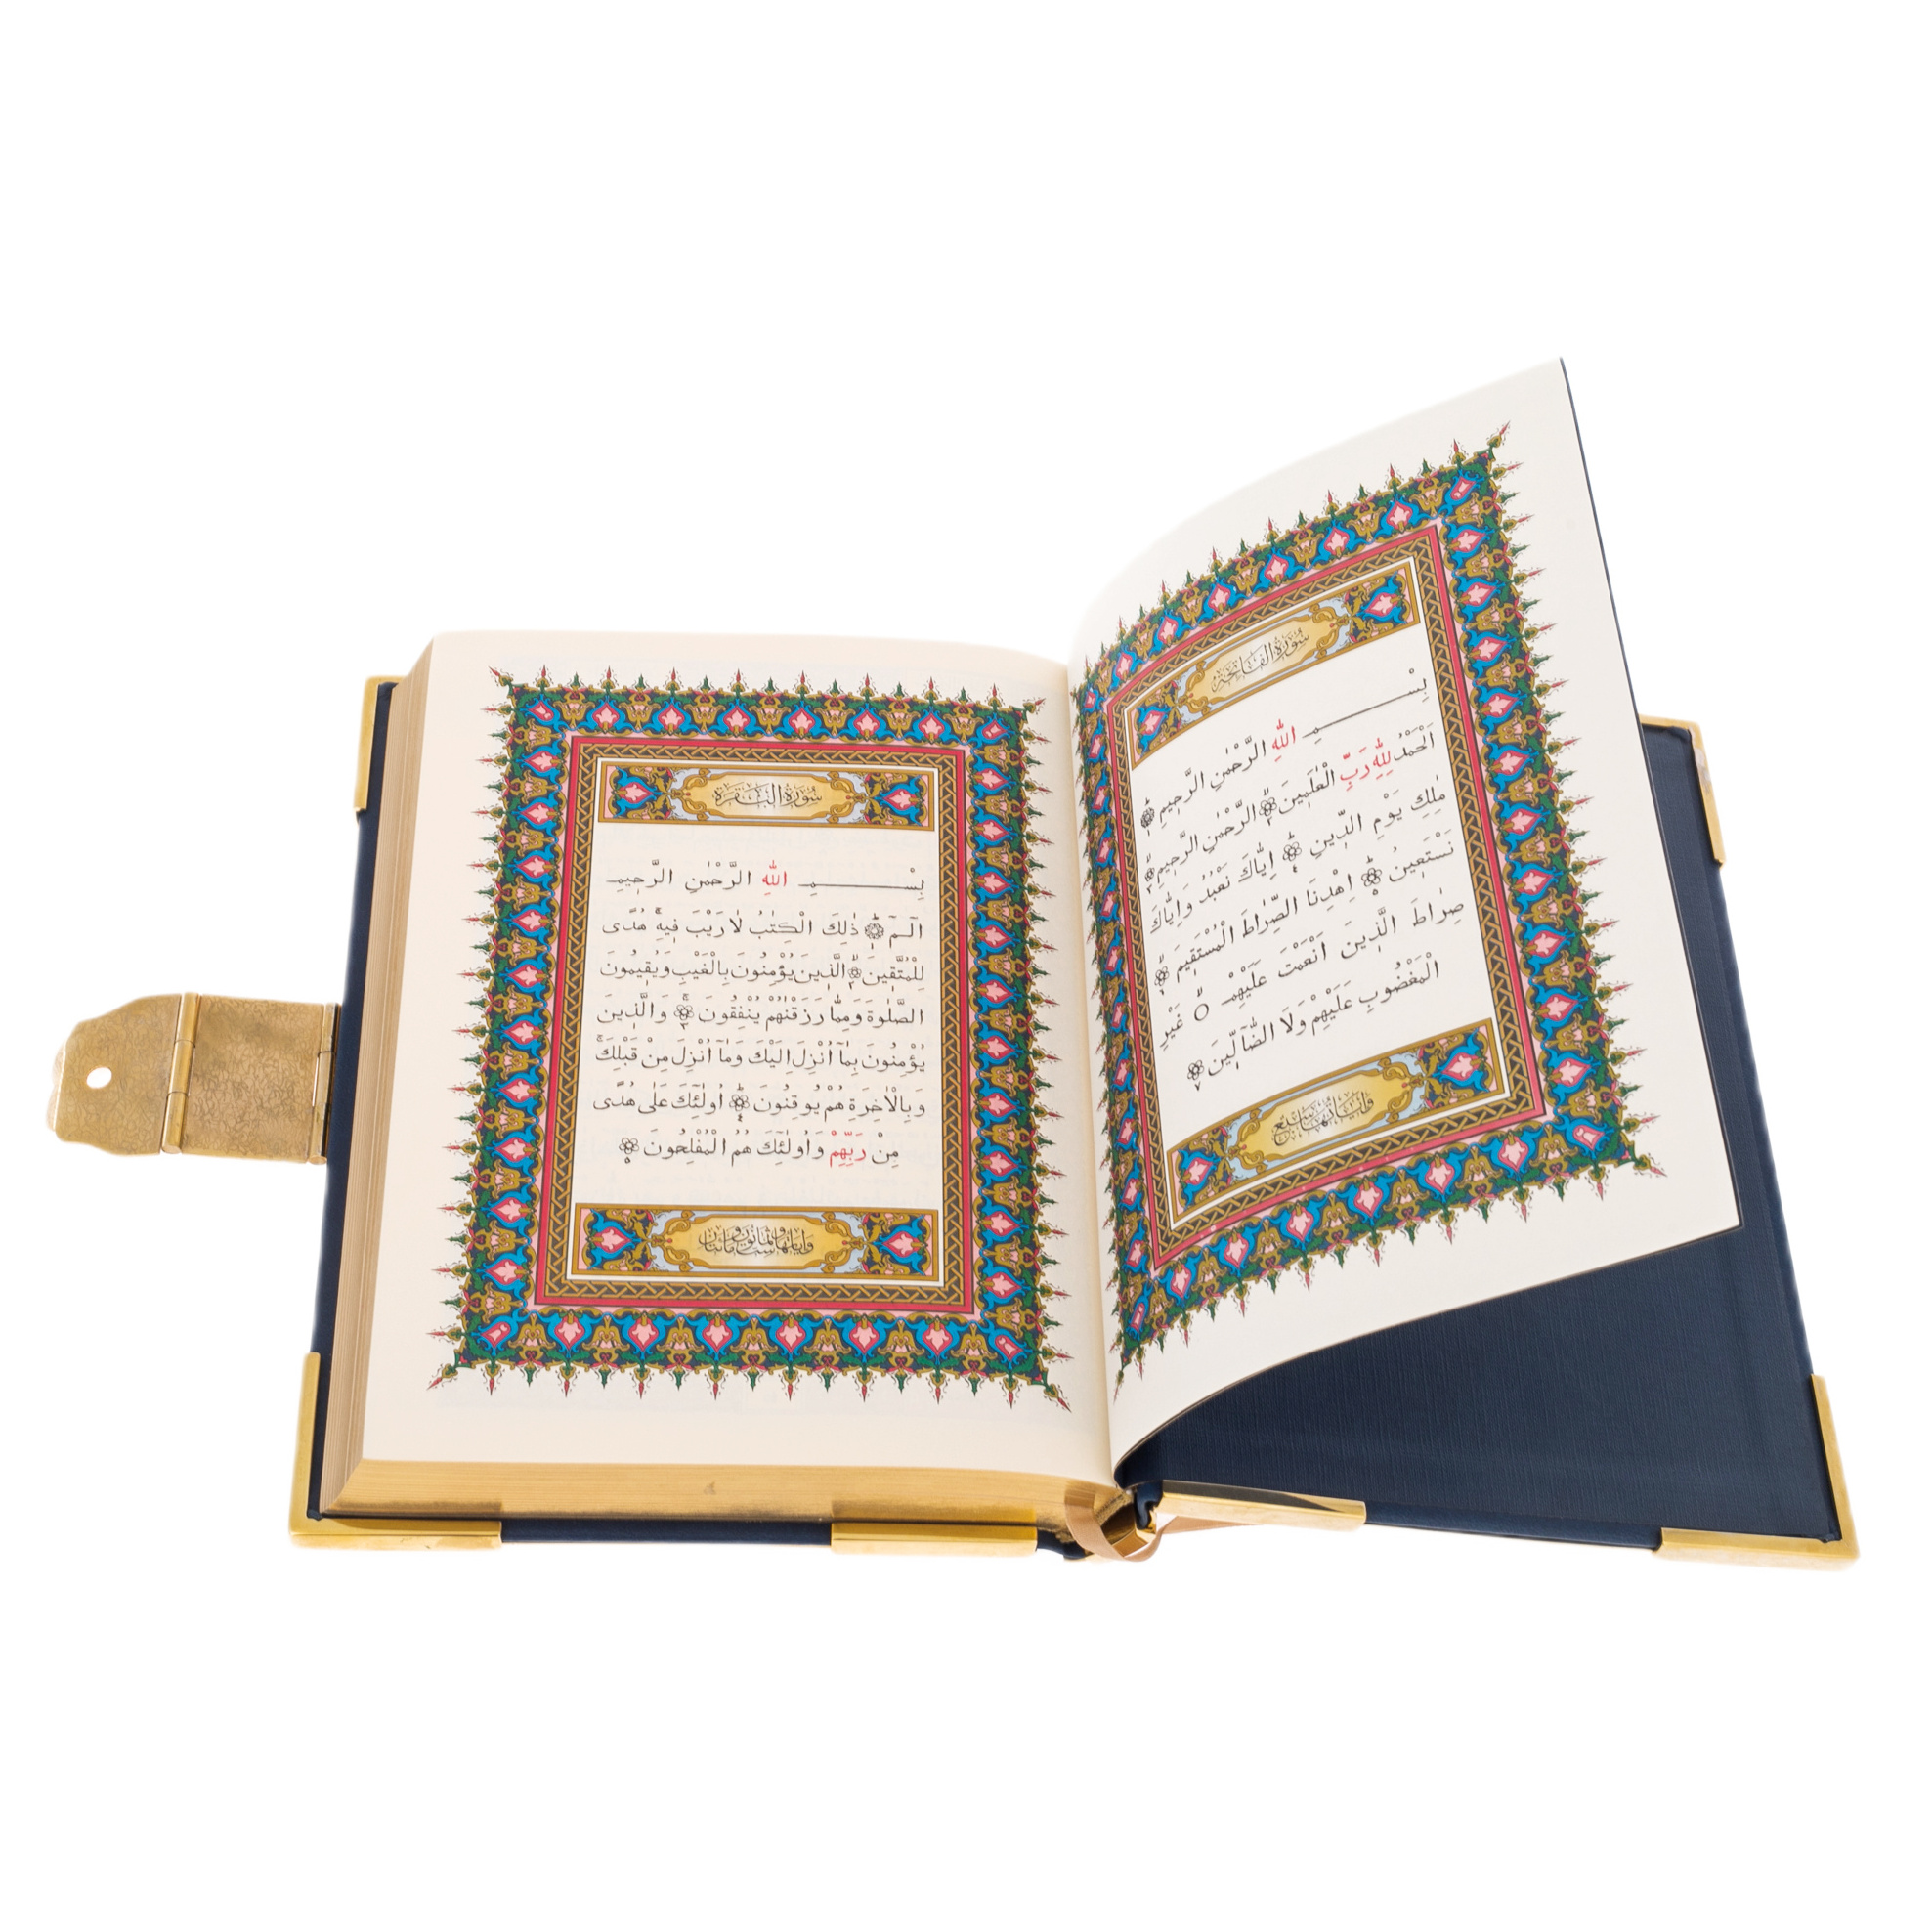 سُورَةُ الْفَاتِحَةِ
بِسْمِ اللّٰهِ الرَّحْمٰنِ الرَّح۪يمِ ١
اَلْحَمْدُ لِلّٰهِ رَبِّ الْعَالَم۪ينَۙ ٢ اَلرَّحْمٰنِ الرَّح۪يمِۙ ٣
مَالِكِ يَوْمِ الدّ۪ينِۜ ٤ اِيَّاكَ نَعْبُدُ وَاِيَّاكَ
نَسْتَع۪ينُۜ ٥ اِهْدِنَا الصِّرَاطَ الْمُسْتَق۪يمَۙ ٦
صِرَاطَ الَّذ۪ينَ اَنْعَمْتَ عَلَيْهِمْۙ غَيْرِ
الْمَغْضُوبِ عَلَيْهِمْ وَلَا الضَّٓالّ۪ينَ ٧
وَاٰيَاتُهَا سَبْعٌ
سُورَةُ الْبَقَرَةِ
بِسْمِ اللّٰهِ الرَّحْمٰنِ الرَّح۪يمِ
الٓمٓۜ ١ ذٰلِكَ الْكِتَابُ لَا رَيْبَ ف۪يهِۚ هُدًى
لِلْمُتَّق۪ينَۙ ٢ اَلَّذ۪ينَ يُؤْمِنُونَ بِالْغَيْبِ وَيُق۪يمُونَ
الصَّلٰوةَ وَمِمَّا رَزَقْنَاهُمْ يُنْفِقُونَۙ ٣ وَالَّذ۪ينَ
يُؤْمِنُونَ بِمَٓا اُنْزِلَ اِلَيْكَ وَمَٓا اُنْزِلَ مِنْ قَبْلِكَۚ
وَبِالْاٰخِرَةِ هُمْ يُوقِنُونَۜ ٤ اُو۬لٰٓئِكَ عَلٰى هُدًى
مِنْ رَبِّهِمْ وَاُو۬لٰٓئِكَ هُمُ الْمُفْلِحُونَ ٥
وَاٰيَاتُهَا مِائَتَانِ وَسِتٌّ وَثَمَانُونَ